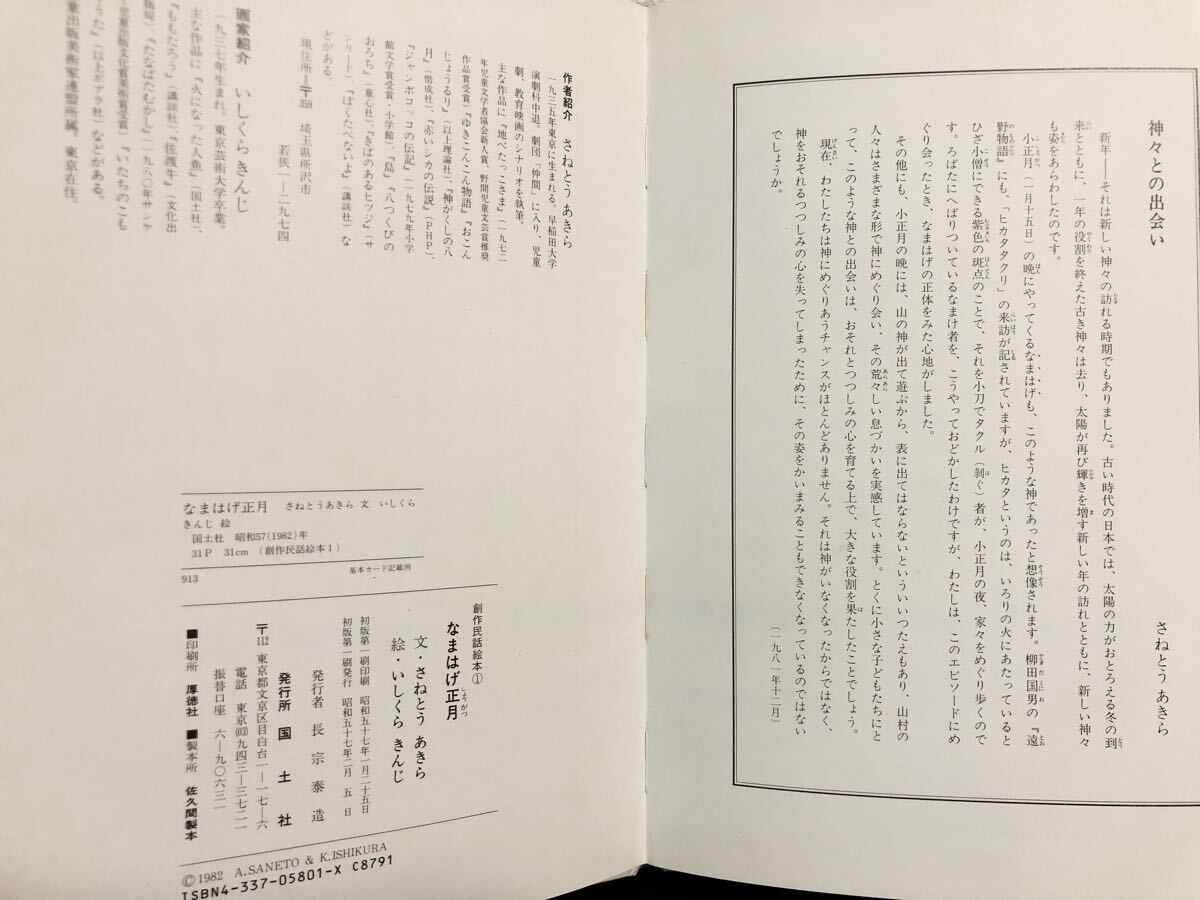 神々との出会い
さねとう あきら
新年――それは新しい神々の訪れる時期でもありました。古い時代の日本では、太陽の力がおとろえる冬の到
来とともに、一年の役割を終えた古き神々は去り、太陽が再び輝きを増す新しい年の訪れとともに、新しい神々
も姿をあらわしたのです。
小正月（一月十五日）の晩にやってくるなまはげも、このような神であったと想像されます。柳田国男の『遠
野物語』にも、「ヒカタタクリ」の来訪が記されていますが、ヒカタというのは、いろりの火にあたっていると
ひざ小僧にできる紫色の斑点のことで、それを小刀でタクル（剝ぐ）者が、小正月の夜、家々をめぐり歩くので
す。ろばたにへばりついているなまけ者を、こうやっておどかしたわけですが、わたしは、このエピソードにめ
ぐり会ったとき、なまはげの正体をみた心地がしました。
その他にも、小正月の晩には、山の神が出て遊ぶから、表に出てはならないといういいつたえもあり、山村の
人々はさまざまな形で神にめぐり会い、その荒々しい息づかいを実感しています。とくに小さな子どもたちにと
って、このような神との出会いは、おそれとつつしみの心を育てる上で、大きな役割を果たしたことでしょう。
現在、わたしたちは神にめぐりあうチャンスがほとんどありません。それは神がいなくなったからではなく、
神をおそれるつつしみの心を失ってしまったために、その姿をかいまみることもできなくなっているのではない
でしょうか。
（一九八一年十二月）
作者紹介 さねとう あきら
一九三五年東京に生まれる。早稲田大学
演劇科中退。劇団「仲間」に入り、児童
劇、教育映画のシナリオを執筆。
主な作品に『地べたっこさま』（一九七二
年児童文学者協会新人賞、野間児童文芸賞推奨
作品賞受賞）『ゆきこんこん物語』『おこん
じょうるり』（以上理論社）、『神がくしの八
月』（偕成社）、『赤いシカの伝説』（PHP）、
『ジャンボコッコの伝記』（一九七九年小学
館文学賞受賞・小学館）、『島』『八つくびの
おろち』（童心社）、『きばのあるヒツジ』（サ
ンリード）、『ぼくたべないよ』（講談社）な
どがある。
現住所＝〒359 埼玉県所沢市
若狭一―二九七四
画家紹介 いしくら きんじ
一九三七年生まれ。東京芸術大学卒業。
主な作品に『火になった人魚』（国土社）、
『ももたろう』（講談社）、『佐渡牛』（文化出
版局）『たなばたむかし』（一九八〇年サンケ
イ児童出版文化賞美術賞受賞）『いたちのこも
りうた』（以上ポプラ社）などがある。
童出版美術家連盟所属。東京在住。
なまはげ正月 さねとうあきら 文 いしくら
きんじ 絵
国土社 昭和57(1982)年
31P 31cm (創作民話絵本1)
913
基本カード記載例
創作民話絵本①
なまはげ正月
文・さねとう あきら
絵・いしくら きんじ
初版第一刷印刷 昭和五十七年一月二十五日
初版第一刷発行 昭和五十七年二月 五 日
発行者 長 宗 泰 造
発行所 国 土 社
〒112 東京都文京区目白台一―一七―六
電話 東京(03)九四三―三七二一
振替口座 六―九〇六三一
■印刷所 厚徳社 ■製本所 佐久間製本
©1982 A.SANETO & K.ISHIKURA
ISBN4-337-05801-X C8791